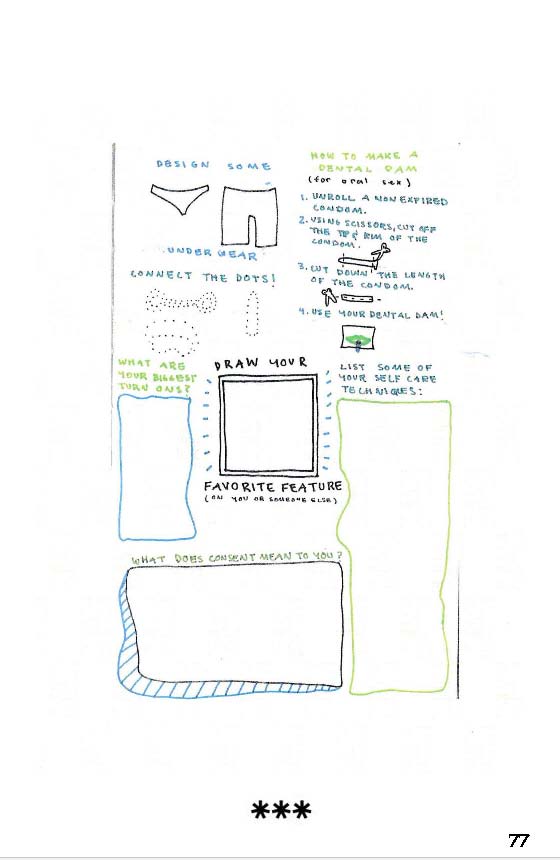 DESIGN SOME
UNDERWEAR
CONNECT THE DOTS!
HOW TO MAKE A
DENTAL DAM
(for oral sex)
1. UNROLL A NON EXPIRED
CONDOM.
2. USING SCISSORS, CUT OFF
THE TIP & RIM OF THE
CONDOM.
3. CUT DOWN THE LENGTH
OF THE CONDOM.
4. USE YOUR DENTAL DAM!
WHAT ARE
YOUR BIGGEST
TURN ONS?
DRAW YOUR
FAVORITE FEATURE
(ON YOU OR SOMEONE ELSE)
LIST SOME OF
YOUR SELF CARE
TECHNIQUES:
WHAT DOES CONSENT MEAN TO YOU?
***
77